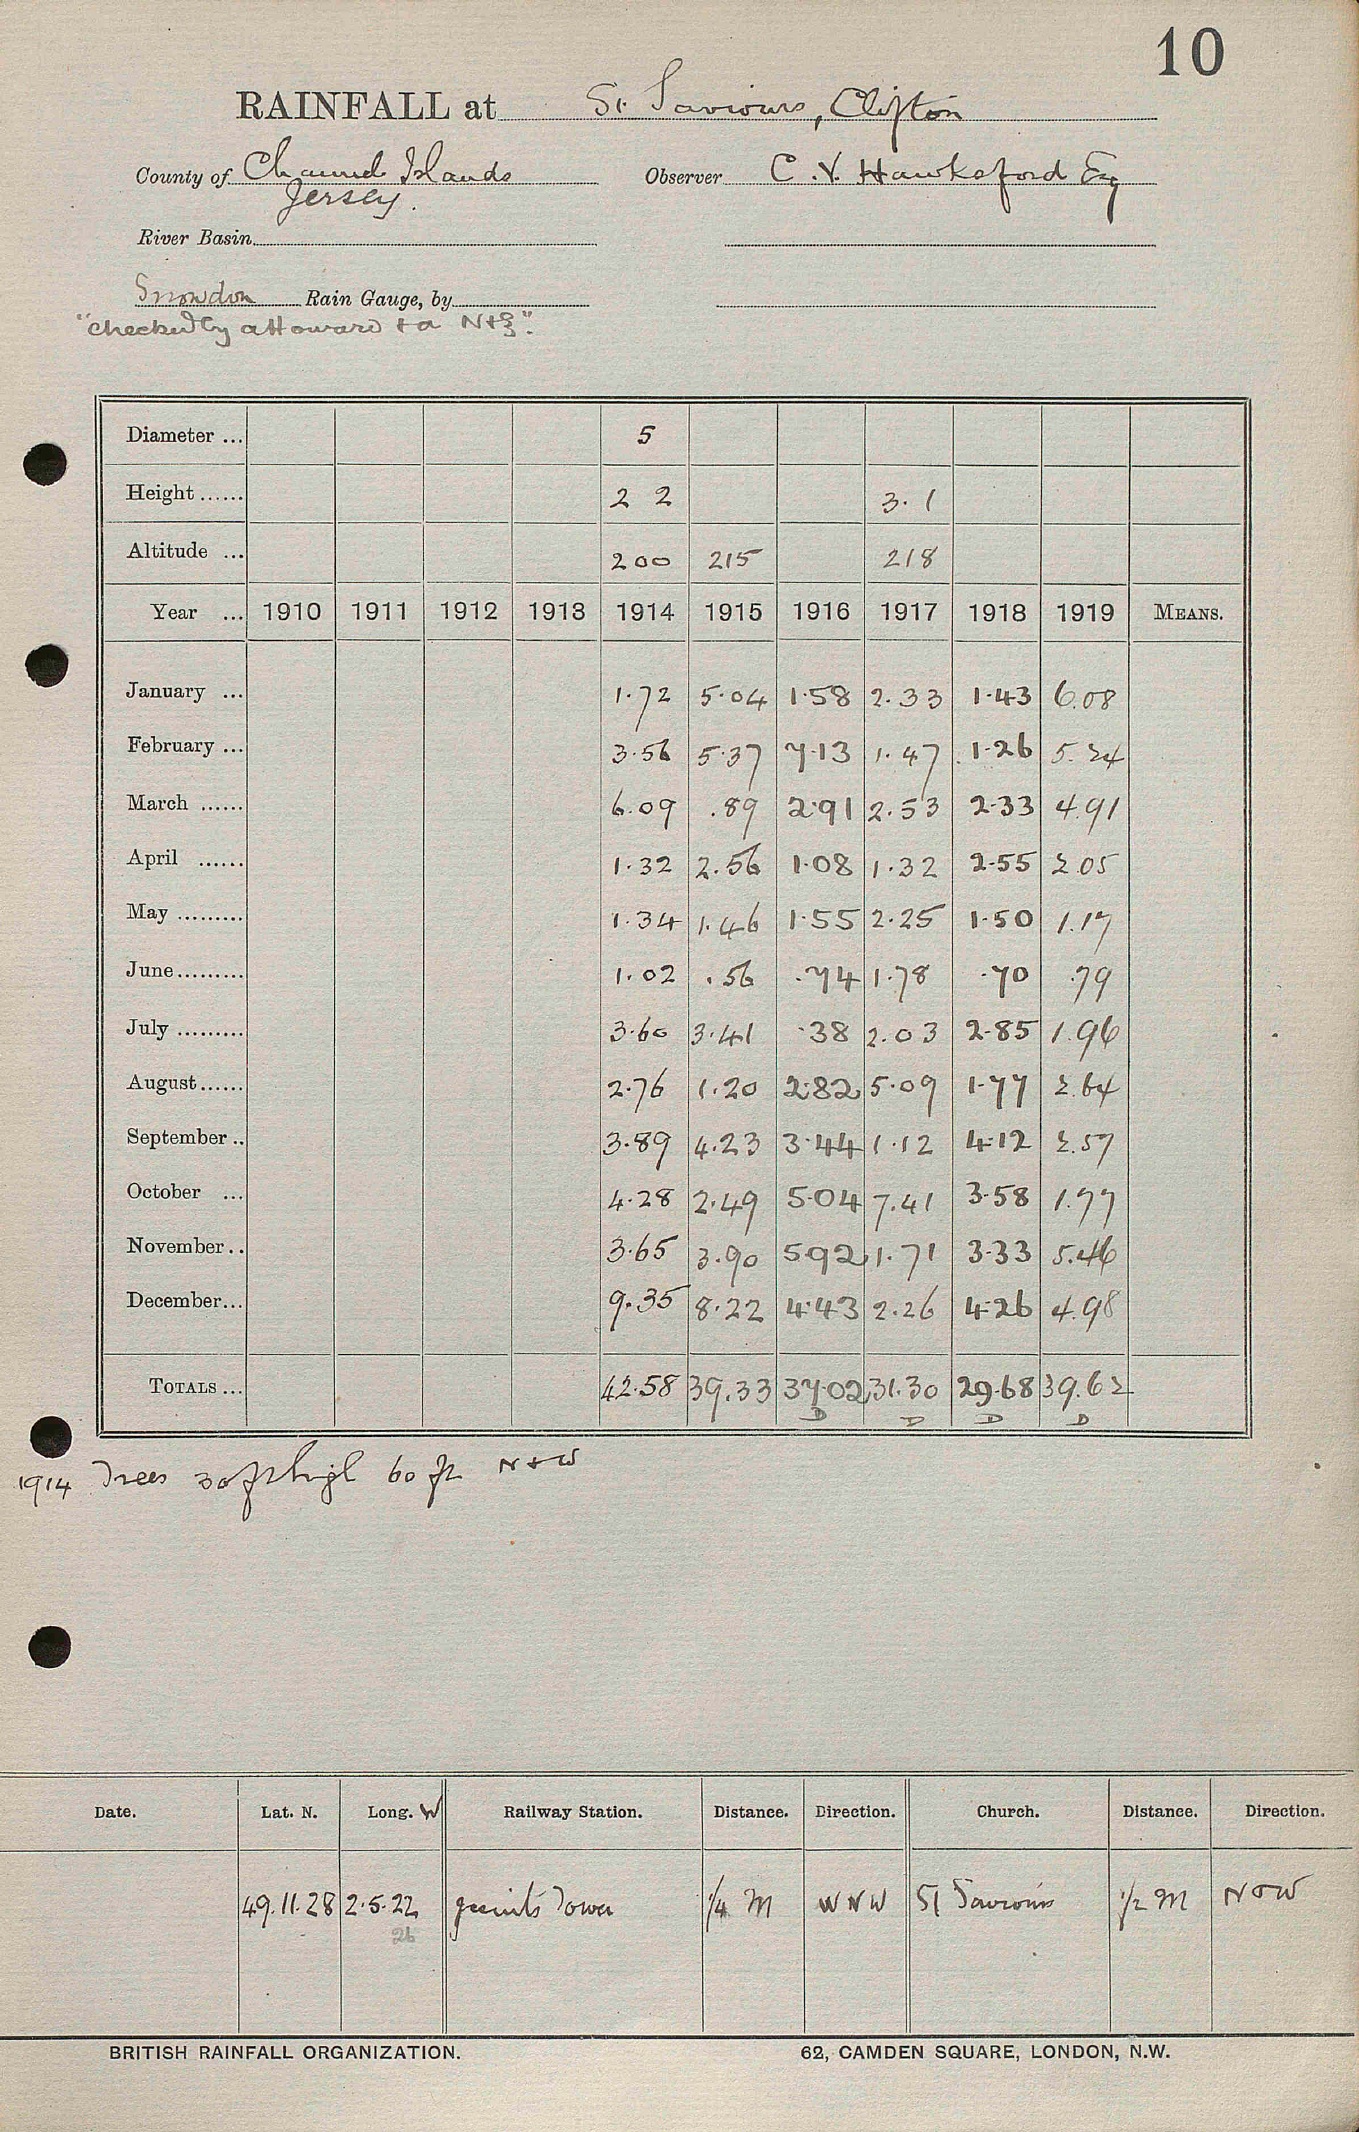 10
RAINFALL at St. Saviours, Clifton
County of Channel Islands Observer C. V. Hawksford Esq
Jersey.
River Basin
Snowdon Rain Gauge, by
"checked by a Howard + a N+Z".
Diameter ... 5
Height ...... 2 2 3.1
Altitude ... 200 215 218
Year ... 1910 1911 1912 1913 1914 1915 1916 1917 1918 1919 MEANS.
January ... 1.72 5.04 1.58 2.33 1.43 6.08
February ... 3.56 5.37 7.13 1.47 1.26 5.24
March ...... 6.09 .89 2.91 2.53 2.33 4.91
April ...... 1.32 2.56 1.08 1.32 2.55 2.05
May ......... 1.34 1.46 1.55 2.25 1.50 1.17
June ......... 1.02 .56 .74 1.78 .70 .79
July ......... 3.60 3.41 .38 2.03 2.85 1.96
August ...... 2.76 1.20 2.82 5.09 1.77 2.64
September .. 3.89 4.23 3.44 1.12 4.12 2.57
October ... 4.28 2.49 5.04 7.41 3.58 1.77
November .. 3.65 3.90 5.92 1.71 3.33 5.46
December ... 9.35 8.22 4.43 2.26 4.26 4.98
TOTALS ... 42.58 39.33 37.02 31.30 29.68 39.62
D D D D
1914 Trees 30 ft high 60 ft N + W
Date. Lat. N. Long. W Railway Station. Distance. Direction. Church. Distance. Direction.
49.11.28 2.5.22 Tower 1/4 M WNW St Saviours 1/2 M
26
BRITISH RAINFALL ORGANIZATION. 62, CAMDEN SQUARE, LONDON, N.W.